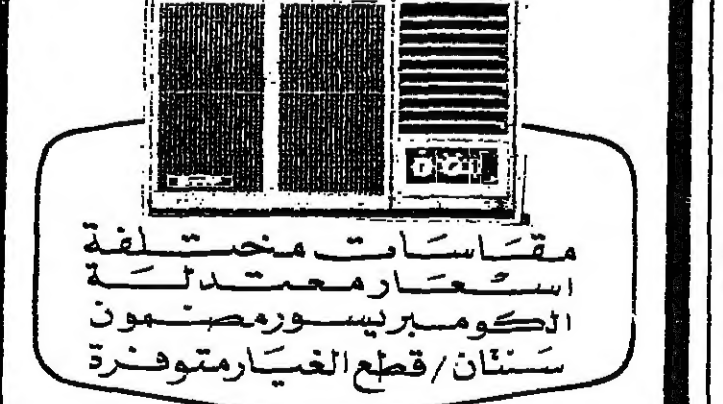 مقاسات مختلفة
اسعار معتدلة
الكومبريسور مضمون
سنتان / قطع الغيار متوفرة